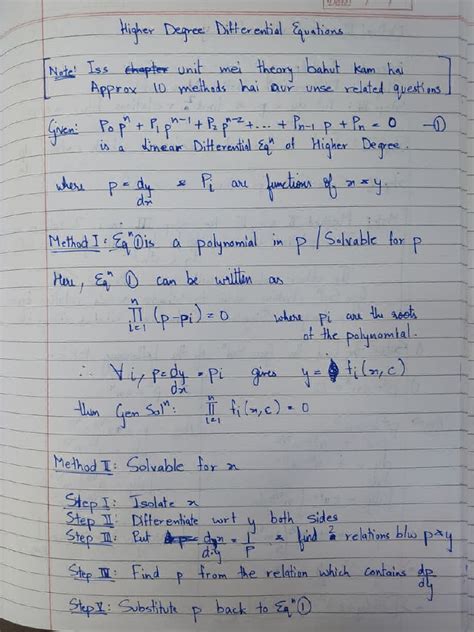 Higher Degree Differential Equations
Note: Iss chapter unit mei theory bahut kam hai
Approx 10 methods hai aur unse related questions
Given: P₀ pⁿ + P₁ pⁿ⁻¹ + P₂ pⁿ⁻² + ... + Pₙ₋₁ p + Pₙ = 0 —①
is a linear Differential Eqⁿ of Higher Degree.
where p = dy/dx & Pᵢ are functions of x & y.
Method I: Eqⁿ ① is a polynomial in p / Solvable for p
Here, Eqⁿ ① can be written as
∏ᵢ₌₁ⁿ (p-pᵢ) = 0 where pi are the roots
of the polynomial.
∴ ∀ i, p = dy/dx = pi gives y = fᵢ(x, c)
then Gen Solⁿ: ∏ᵢ₌₁ⁿ fᵢ(x, c) = 0
Method II: Solvable for x
Step I: Isolate x
Step II: Differentiate wrt y both sides
Step III: Put dx/dy = 1/p & find 2 relations b/w p & y
Step IV: Find p from the relation which contains dp/dy
Step V: Substitute p back to Eqⁿ ①